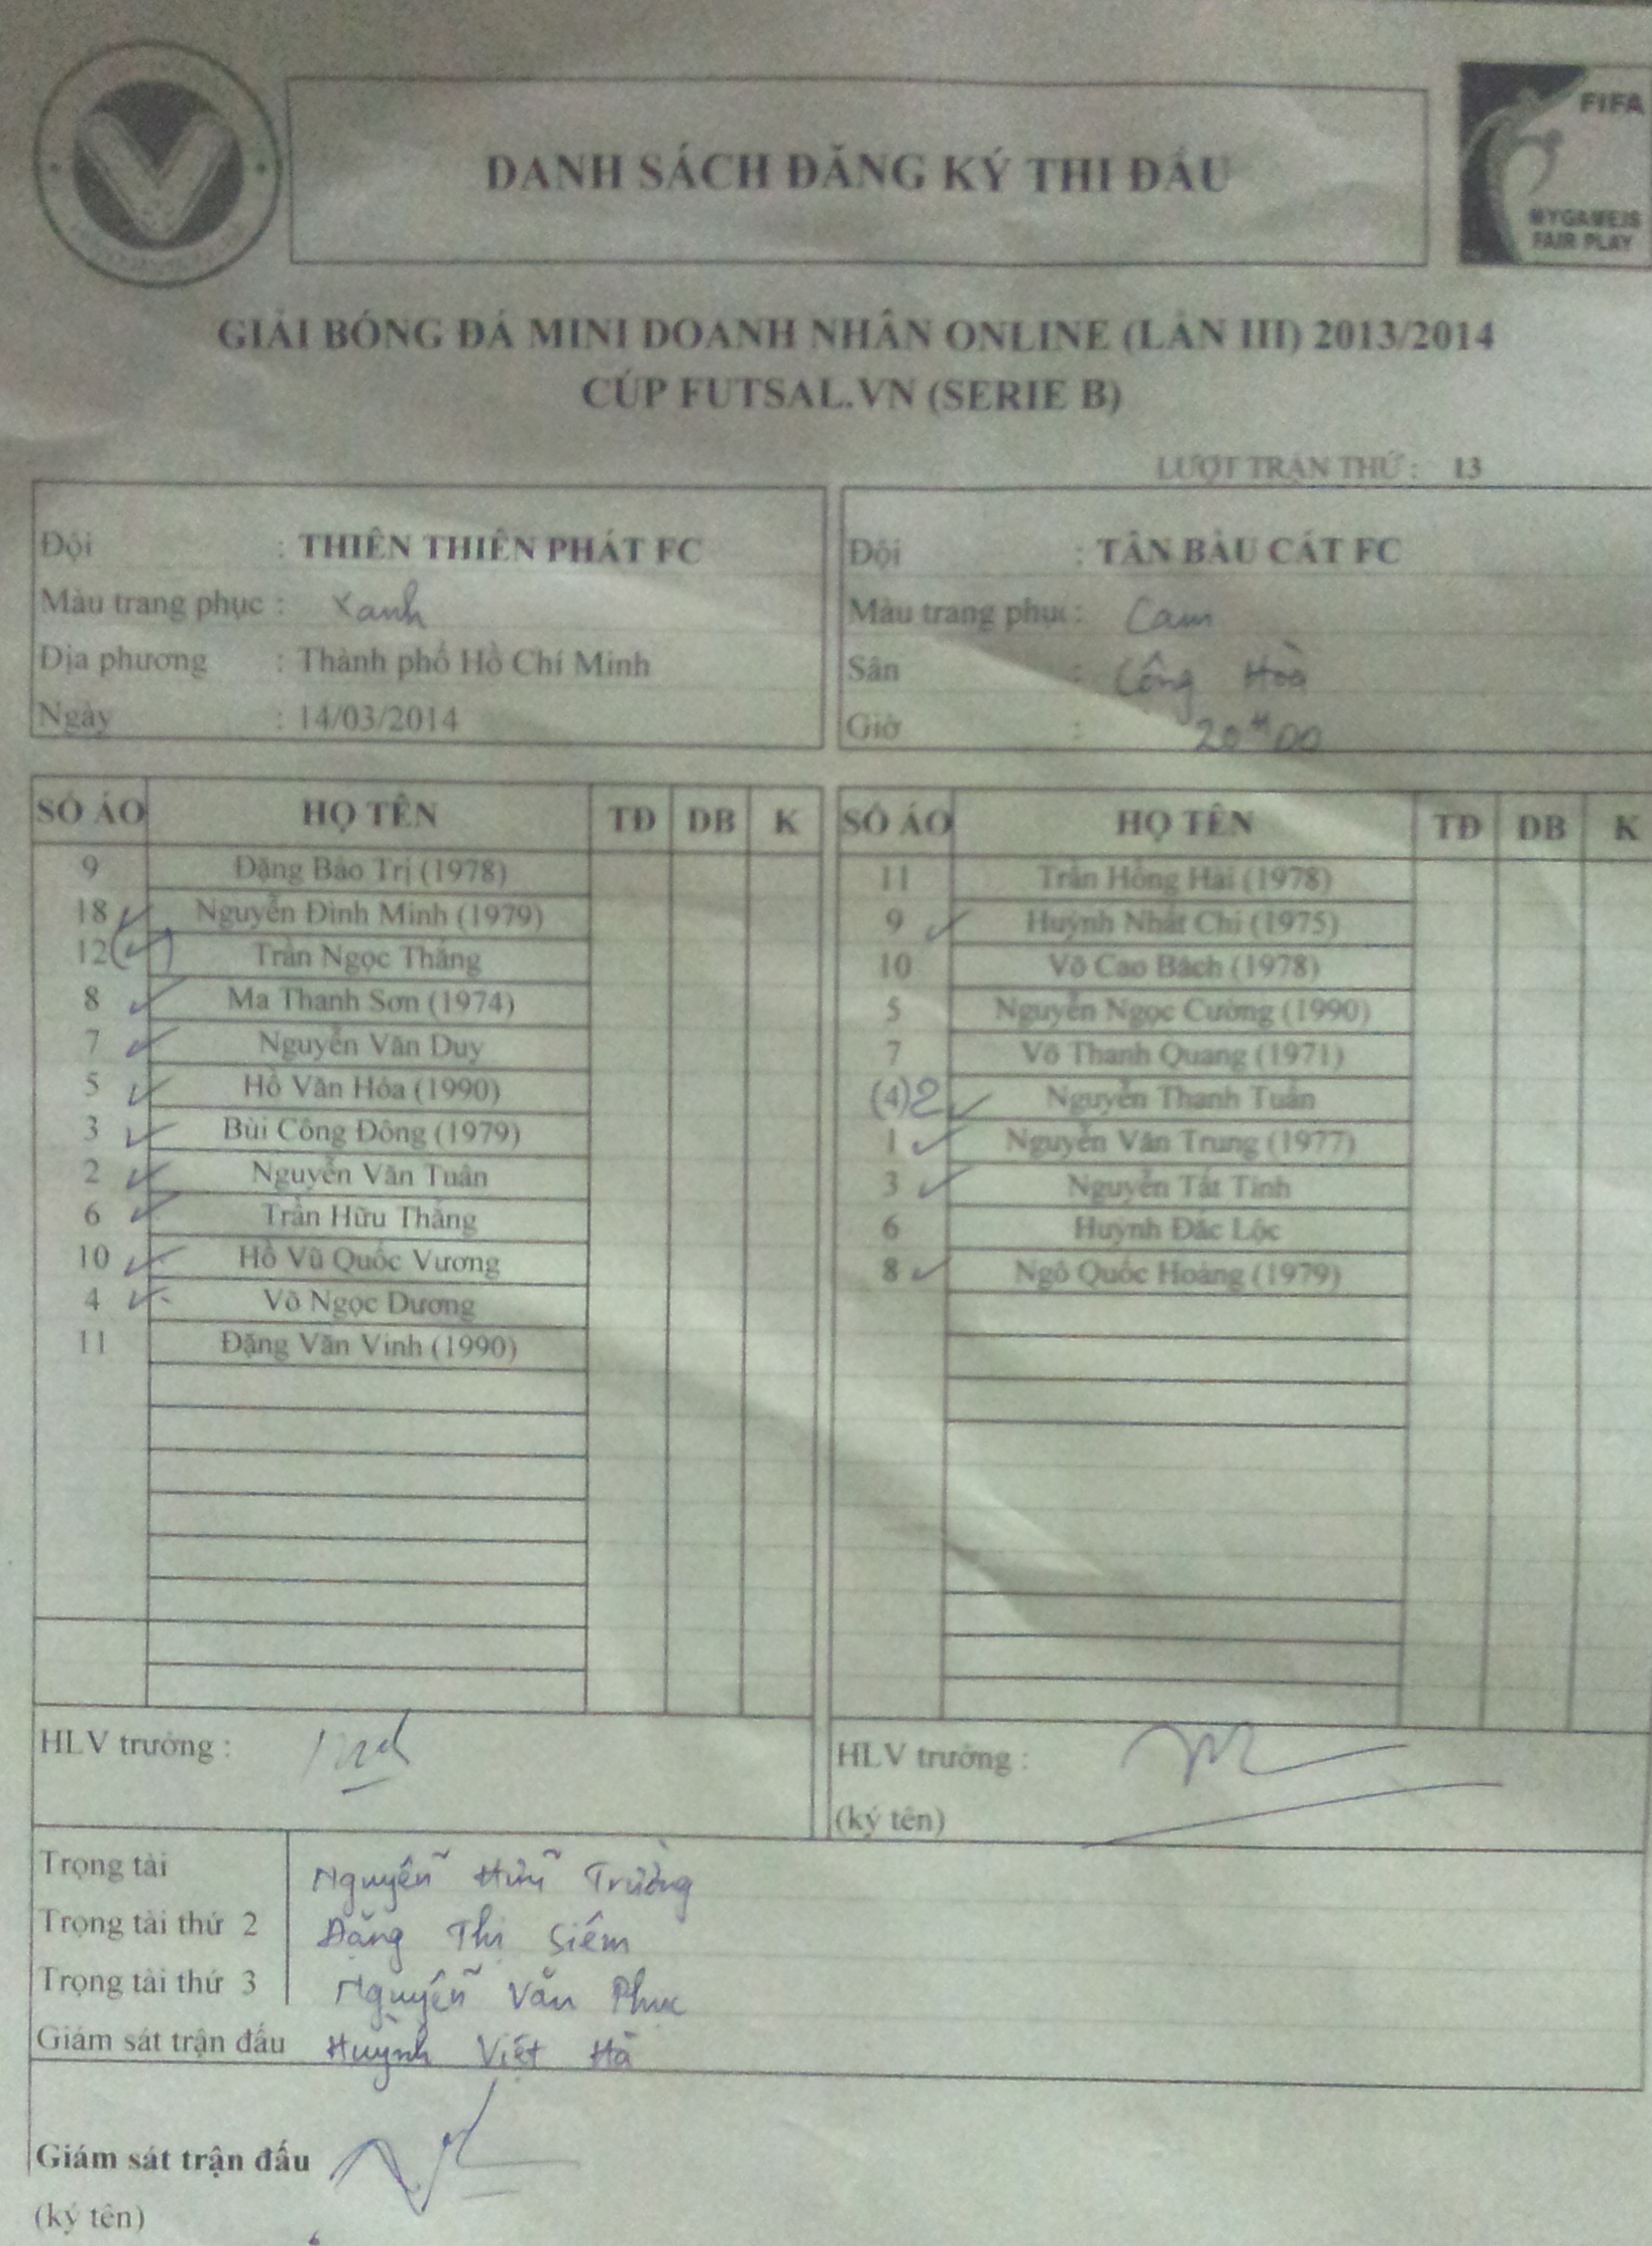 DANH SÁCH ĐĂNG KÝ THI ĐẤU
FIFA
MY GAME IS
FAIR PLAY
GIẢI BÓNG ĐÁ MINI DOANH NHÂN ONLINE (LẦN III) 2013/2014
CÚP FUTSAL.VN (SERIE B)
LƯỢT TRẬN THỨ : 13
Đội : THIÊN THIÊN PHÁT FC
Màu trang phục : Xanh
Địa phương : Thành phố Hồ Chí Minh
Ngày : 14/03/2014
Đội : TÂN BÀU CÁT FC
Màu trang phục : Cam
Sân : Cộng Hòa
Giờ : 20H00
SỐ ÁO HỌ TÊN TĐ DB K
9 Đặng Bảo Trị (1978)
18 Nguyễn Đình Minh (1979)
12 Trần Ngọc Thắng
8 Ma Thanh Sơn (1974)
7 Nguyễn Văn Duy
5 Hồ Văn Hóa (1990)
3 Bùi Công Đông (1979)
2 Nguyễn Văn Tuân
6 Trần Hữu Thắng
10 Hồ Vũ Quốc Vương
4 Võ Ngọc Dương
11 Đặng Văn Vinh (1990)
HLV trưởng :
SỐ ÁO HỌ TÊN TĐ DB K
11 Trần Hồng Hải (1978)
9 Huỳnh Nhất Chi (1975)
10 Võ Cao Bách (1978)
5 Nguyễn Ngọc Cường (1990)
7 Võ Thanh Quang (1971)
(4) 2 Nguyễn Thanh Tuấn
1 Nguyễn Văn Trung (1977)
3 Nguyễn Tất Tinh
6 Huỳnh Đắc Lộc
8 Ngô Quốc Hoàng (1979)
HLV trưởng :
(ký tên)
Trọng tài Nguyễn Hữu Trường
Trọng tài thứ 2 Đặng Thị Siêm
Trọng tài thứ 3 Nguyễn Văn Phục
Giám sát trận đấu Huỳnh Việt Hà
Giám sát trận đấu
(ký tên)